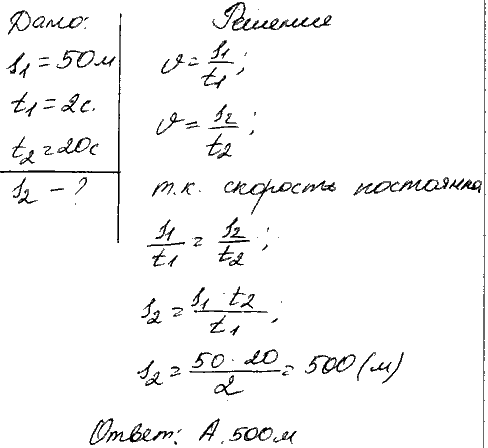 Дано:
s₁ = 50м
t₁ = 2с.
t₂ = 20с
s₂ - ?
Решение
𝜗 = s₁/t₁;
𝜗 = s₂/t₂;
т.к. скорость постоянна
s₁/t₁ = s₂/t₂;
s₂ = s₁ · t₂/t₁;
s₂ = 50 · 20/2 = 500 (м)
Ответ: А. 500м